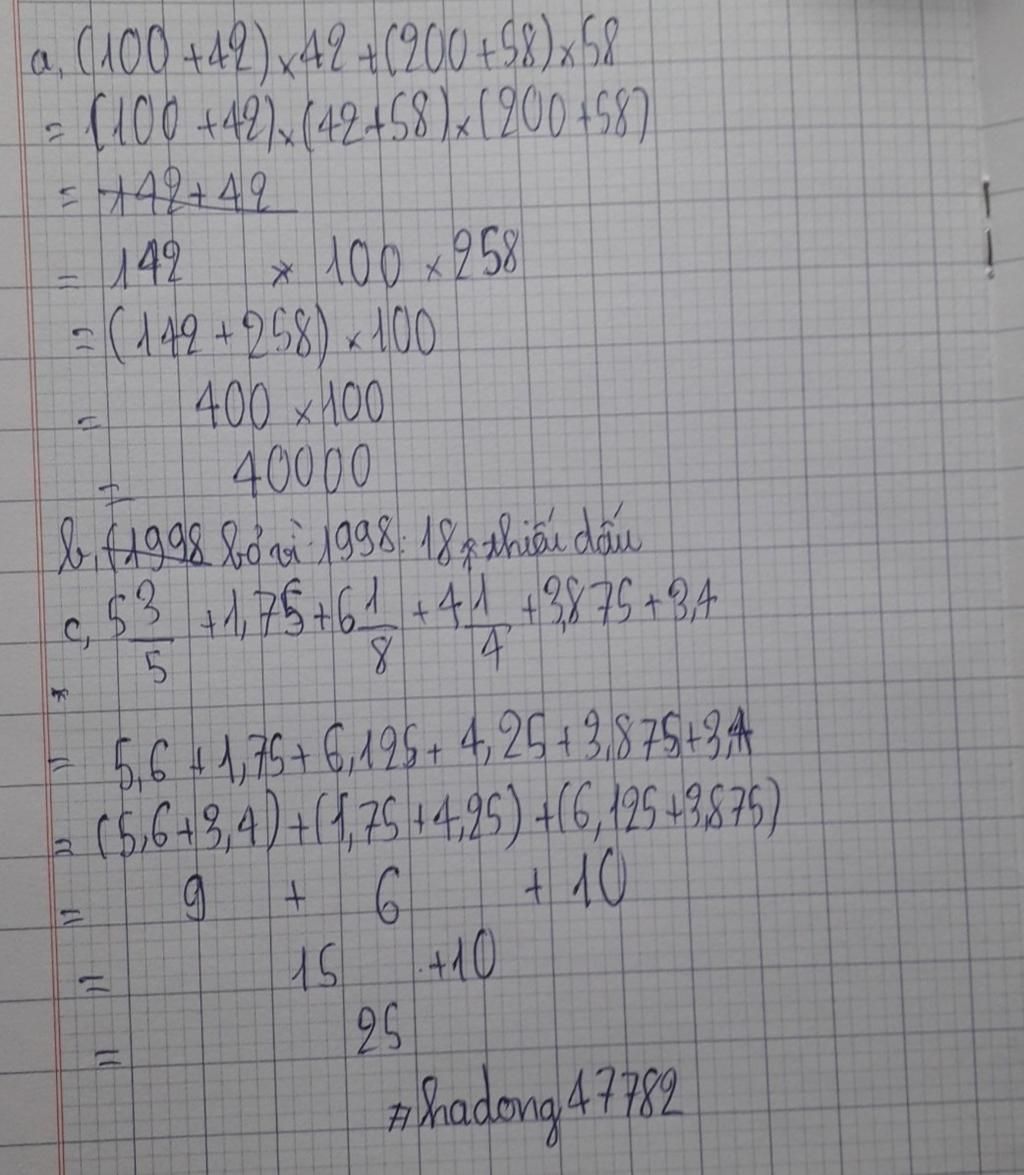 a, (100 + 42) × 42 + (200 + 58) × 58
= (100 + 42) × (42 + 58) × (200 + 58)
= 142 + 42
= 142 × 100 × 258
= (142 + 258) × 100
= 400 × 100
= 40000
b, (1998 bởi vì 1998: 18 × thiếu dấu
c, 5 3/5 + 1,75 + 6 1/8 + 4 1/4 + 3,875 + 3,4
= 5,6 + 1,75 + 6,125 + 4,25 + 3,875 + 3,4
= (5,6 + 3,4) + (1,75 + 4,25) + (6,125 + 3,875)
= 9 + 6 + 10
= 15 + 10
= 25
#hadong47782